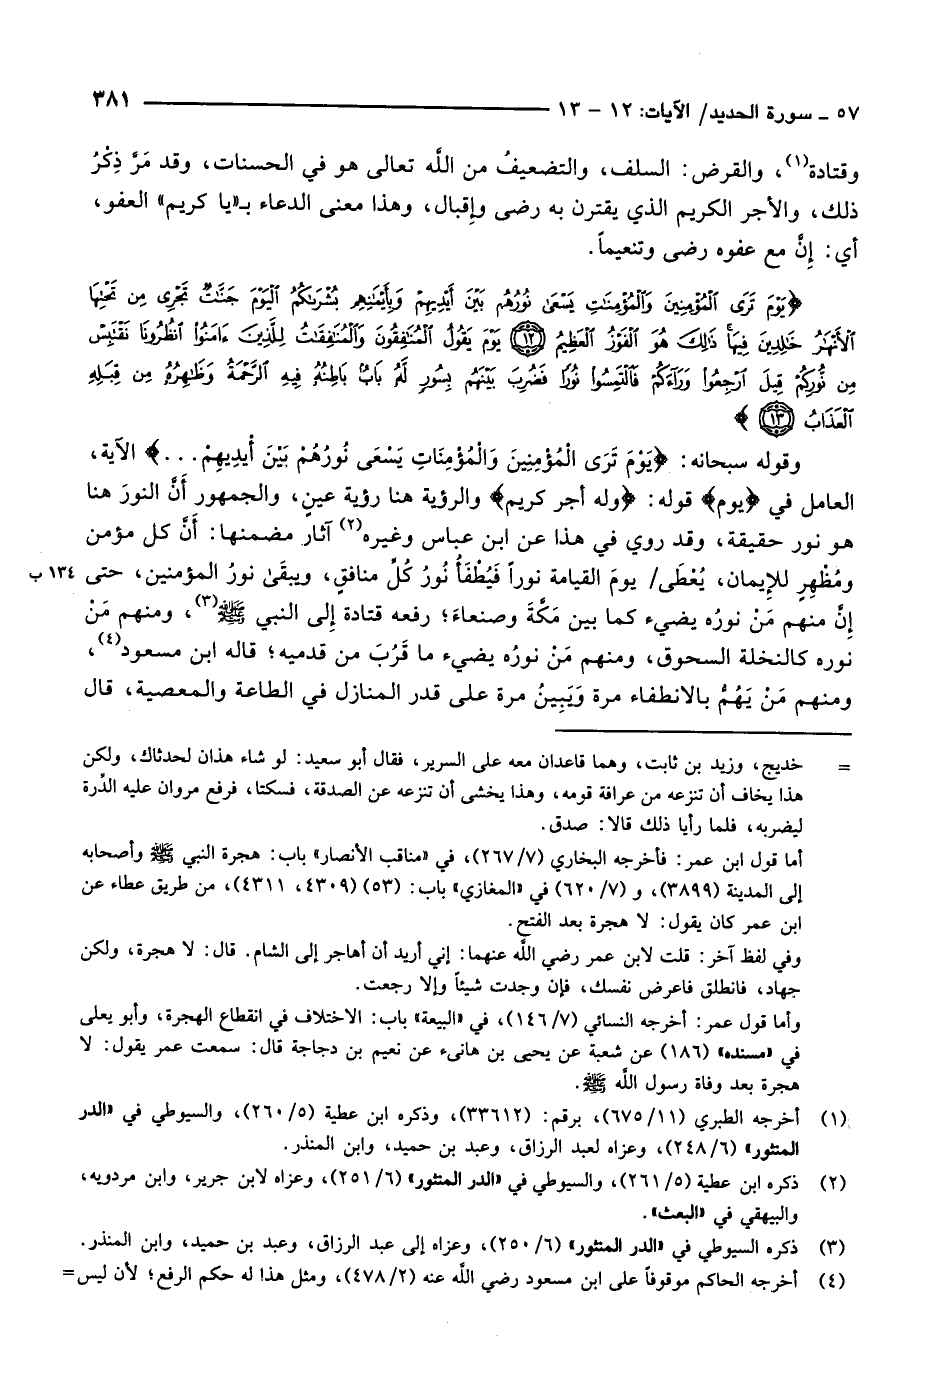 ٥٧ ـ سورة الحديد/ الآيات: ١٢ - ١٣ ٣٨١
وقتادة(١)، والقرض: السلف، والتضعيفُ من اللَّه تعالى هو في الحسنات، وقد مَرَّ ذِكْرُ
ذلك، والأجر الكريم الذي يقترن به رضى وإقبال، وهذا معنى الدعاء بـ«يا كريم» العفو،
أي: إنَّ مع عفوه رضى وتنعيماً.
﴿يَوْمَ تَرَى ٱلْمُؤْمِنِينَ وَٱلْمُؤْمِنَٰتِ يَسْعَىٰ نُورُهُم بَيْنَ أَيْدِيهِمْ وَبِأَيْمَٰنِهِم بُشْرَىٰكُمُ ٱلْيَوْمَ جَنَّٰتٌ تَجْرِى مِن تَحْتِهَا
ٱلْأَنْهَٰرُ خَٰلِدِينَ فِيهَاۚ ذَٰلِكَ هُوَ ٱلْفَوْزُ ٱلْعَظِيمُ ﴿١٢﴾ يَوْمَ يَقُولُ ٱلْمُنَٰفِقُونَ وَٱلْمُنَٰفِقَٰتُ لِلَّذِينَ ءَامَنُوا۟ ٱنظُرُونَا نَقْتَبِسْ
مِن نُّورِكُمْ قِيلَ ٱرْجِعُوا۟ وَرَآءَكُمْ فَٱلْتَمِسُوا۟ نُورًا فَضُرِبَ بَيْنَهُم بِسُورٍ لَّهُۥ بَابٌۢ بَاطِنُهُۥ فِيهِ ٱلرَّحْمَةُ وَظَٰهِرُهُۥ مِن قِبَلِهِ
ٱلْعَذَابُ ﴿١٣﴾﴾
وقوله سبحانه: ﴿يَوْمَ تَرَى الْمُؤْمِنِينَ وَالْمُؤْمِنَاتِ يَسْعَى نُورُهُمْ بَيْنَ أَيدِيهِمْ...﴾ الآية،
العامل في ﴿يوم﴾ قوله: ﴿وله أجر كريم﴾ والرؤية هنا رؤية عينٍ، والجمهور أَنَّ النورَ هنا
هو نور حقيقة، وقد روي في هذا عن ابن عباس وغيره(٢) آثار مضمنها: أَنَّ كل مؤمن
ومُظْهِرٍ للإيمان، يُعْطَى/ يومَ القيامة نوراً فَيُطْفَأُ نُورُ كُلِّ منافقٍ، ويبقَىٰ نورُ المؤمنين، حتى ١٣٤ ب
إنَّ منهم مَنْ نورُه يضيء كما بين مَكَّةَ وصنعاءَ؛ رفعه قتادة إلى النبي ﷺ(٣)، ومنهم مَنْ
نوره كالنخلة السحوق، ومنهم مَنْ نورُه يضيء ما قَرُبَ من قدميه؛ قاله ابن مسعود(٤)،
ومنهم مَنْ يَهُمُّ بالانطفاء مرة وَيَبِينُ مرة على قدر المنازل في الطاعة والمعصية، قال
= خديج، وزيد بن ثابت، وهما قاعدان معه على السرير، فقال أبو سعيد: لو شاء هذان لحدثاك، ولكن
هذا يخاف أن تنزعه من عرافة قومه، وهذا يخشى أن تنزعه عن الصدقة، فسكتا، فرفع مروان عليه الدِّرة
ليضربه، فلما رأيا ذلك قالا: صدق.
أما قول ابن عمر: فأخرجه البخاري (٢٦٧/٧)، في «مناقب الأنصار» باب: هجرة النبي ﷺ وأصحابه
إلى المدينة (٣٨٩٩)، و (٦٢٠/٧) في «المغازي» باب: (٥٣) (٤٣٠٩، ٤٣١١)، من طريق عطاء عن
ابن عمر كان يقول: لا هجرة بعد الفتح.
وفي لفظ آخر: قلت لابن عمر رضي اللَّه عنهما: إني أريد أن أهاجر إلى الشام. قال: لا هجرة، ولكن
جهاد، فانطلق فاعرض نفسك، فإن وجدت شيئاً وإلا رجعت.
وأما قول عمر: أخرجه النسائي (١٤٦/٧)، في «البيعة» باب: الاختلاف في انقطاع الهجرة، وأبو يعلى
في «مسنده» (١٨٦) عن شعبة عن يحيى بن هانىء عن نعيم بن دجاجة قال: سمعت عمر يقول: لا
هجرة بعد وفاة رسول اللَّه ﷺ.
(١) أخرجه الطبري (٦٧٥/١١)، برقم: (٣٣٦١٢)، وذكره ابن عطية (٢٦٠/٥)، والسيوطي في «الدر
المنثور» (٢٤٨/٦)، وعزاه لعبد الرزاق، وعبد بن حميد، وابن المنذر.
(٢) ذكره ابن عطية (٢٦١/٥)، والسيوطي في «الدر المنثور» (٢٥١/٦)، وعزاه لابن جرير، وابن مردويه،
والبيهقي في «البعث».
(٣) ذكره السيوطي في «الدر المنثور» (٢٥٠/٦)، وعزاه إلى عبد الرزاق، وعبد بن حميد، وابن المنذر.
(٤) أخرجه الحاكم موقوفاً على ابن مسعود رضي اللَّه عنه (٤٧٨/٢)، ومثل هذا له حكم الرفع؛ لأن ليس=